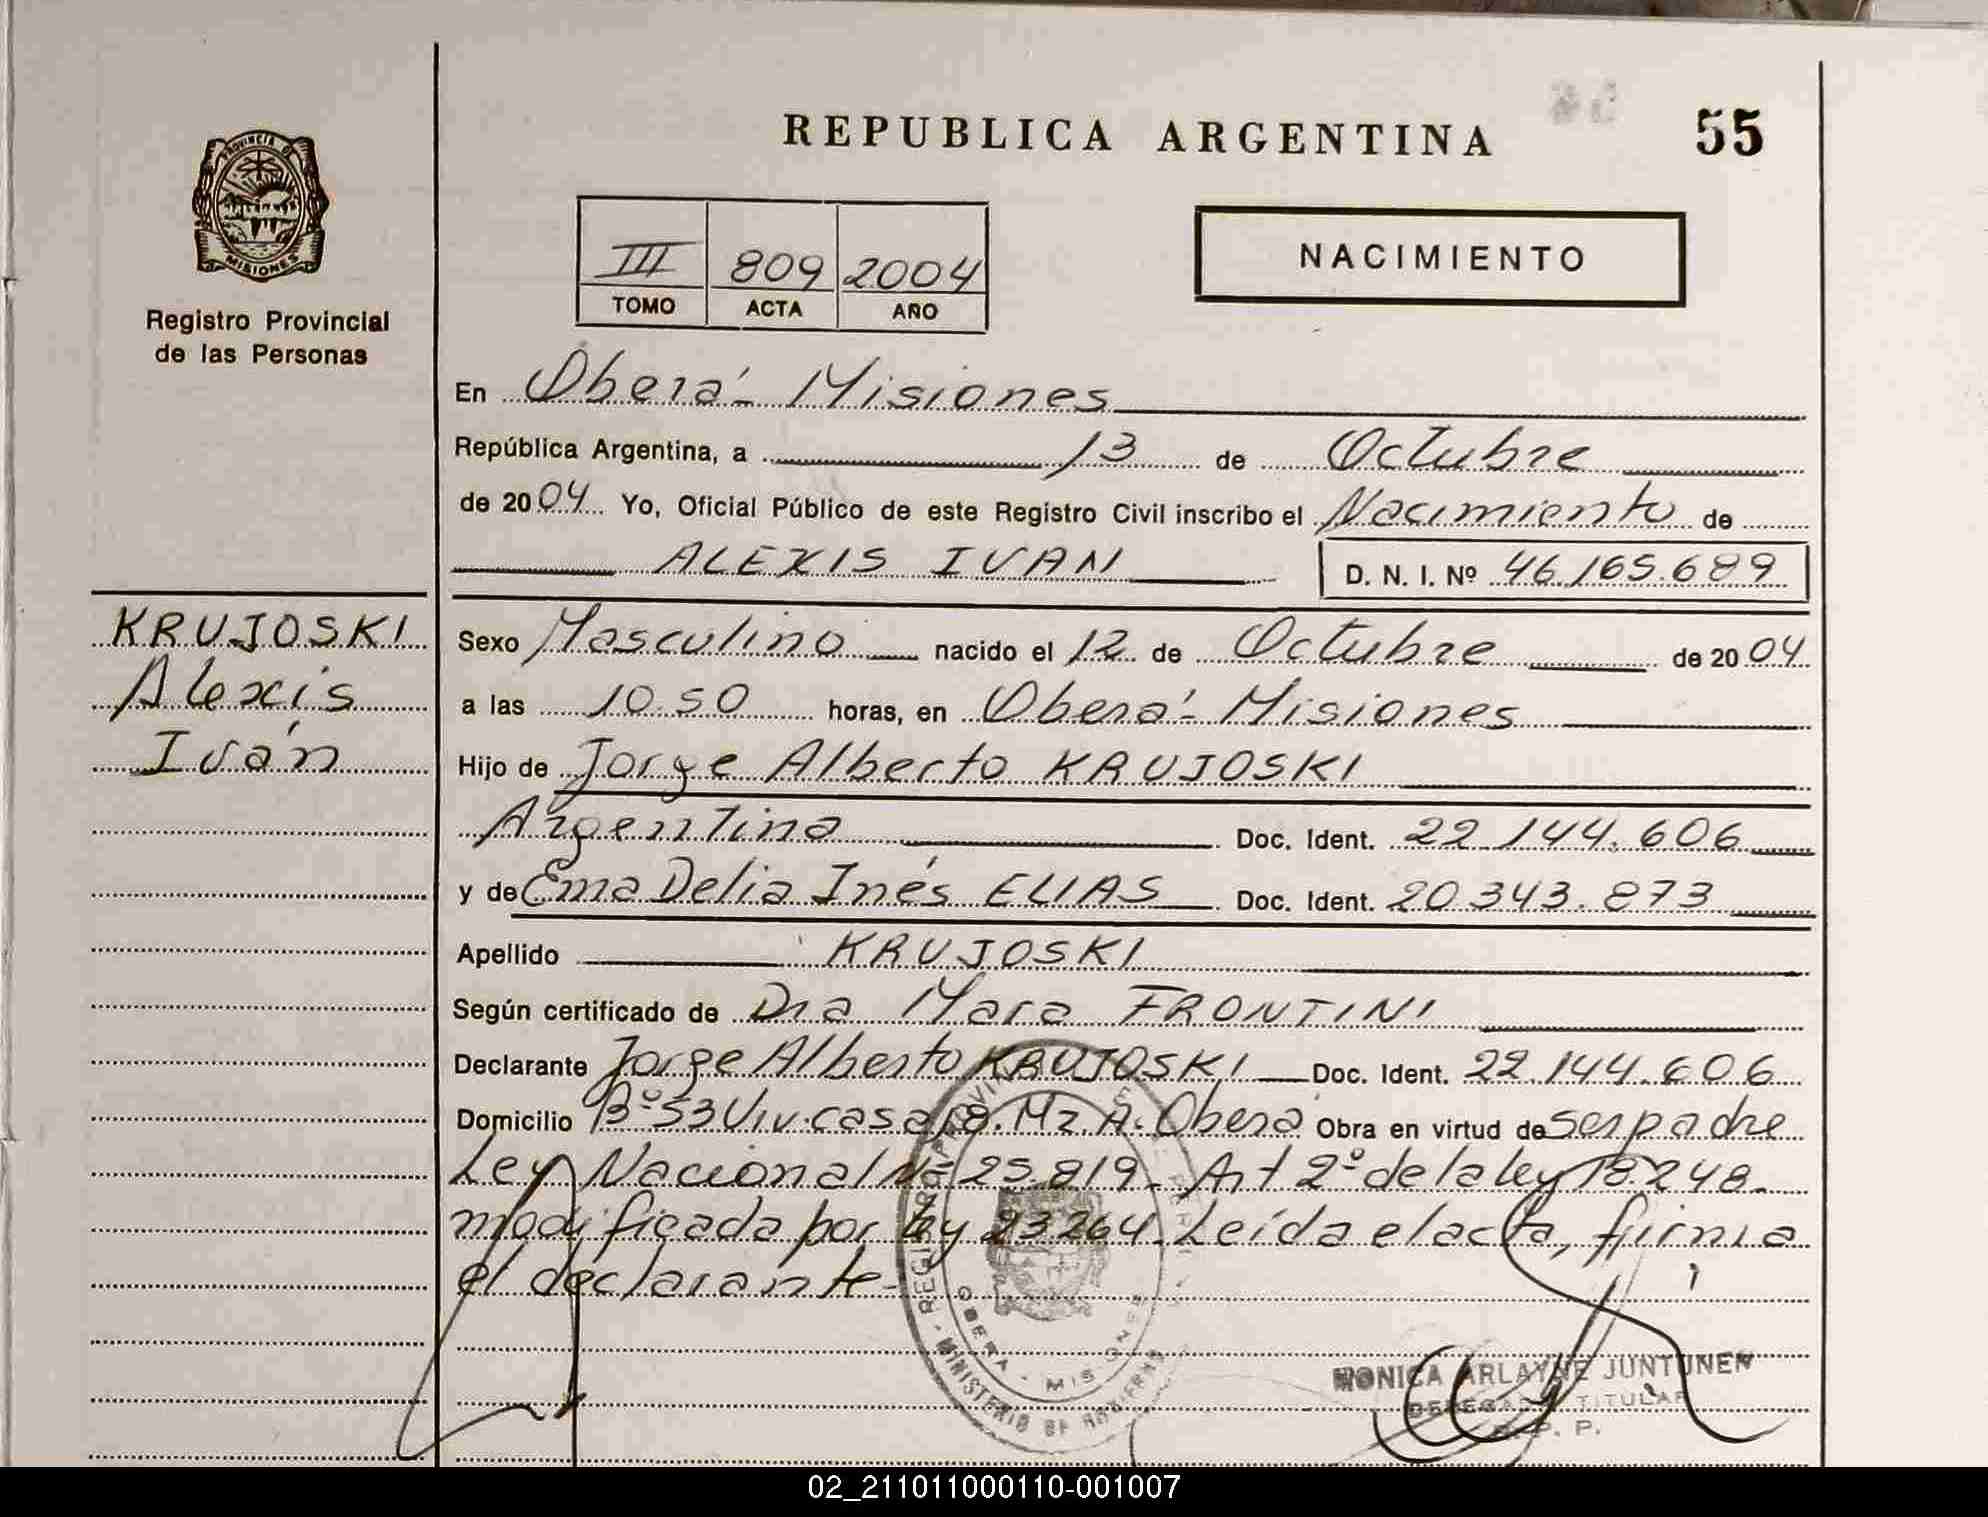 REPUBLICA ARGENTINA
55
PROVINCIA DE
MISIONES
Registro Provincial
de las Personas
III 809 2004
TOMO ACTA AÑO
NACIMIENTO
En Oberá - Misiones
República Argentina, a 13 de Octubre
de 2004 Yo, Oficial Público de este Registro Civil inscribo el Nacimiento de
ALEXIS IVAN D. N. I. Nº 46.165.689
KRUJOSKI
Alexis
Iván
Sexo Masculino nacido el 12 de Octubre de 2004
a las 10.50 horas, en Oberá - Misiones
Hijo de Jorge Alberto KRUJOSKI
Argentina Doc. Ident. 22.144.606
y de Ema Delia Inés ELIAS Doc. Ident. 20.343.873
Apellido KRUJOSKI
Según certificado de Dra Mara FRONTINI
Declarante Jorge Alberto KRUJOSKI Doc. Ident. 22.144.606
Domicilio Bº 53 Viv. casa 18. Mz A. Oberá Obra en virtud de ser padre
Ley Nacional Nº 25.819 - Art 2º de la ley 18.248 -
modificada por ley 23264. Leída el acta, firma
el declarante -
OBERA - MISIONES
MINISTERIO DE GOBIERNO
MONICA ARLAYNE JUNTUNEN
DELEGADA TITULAR
R. P. P.
02_211011000110-001007